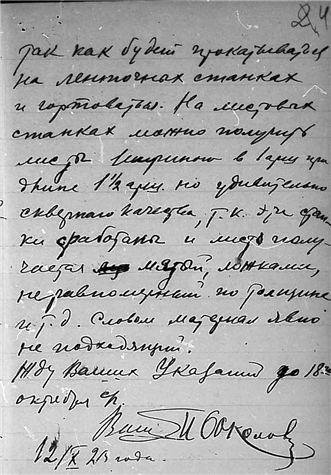 24
так как будет прокатываться
на ленточных станках
и гортоваться. На листовых
станках можно получить
листы шириною в 1 арш при
длине 1½ арш. но удивительно
скверного качества, т.к. эти стан-
ки сработаны и листы полу-
чается мятый, ложками,
неравномерный по толщине
и т.д. Словом материал явно
не подходящий.
Жду Ваших Указаний до 18го
октября с/г.
Ваш И Соколов
12/X 23 года.